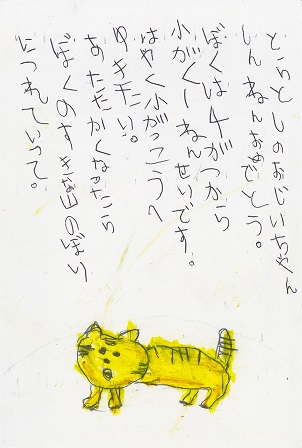 とらどしのおじいちゃん
しんねんおめでとう。
ぼくは4がつから
小がく一ねんせいです。
はやく小がっこうへ
ゆきたい。
あたたかくなったら
ぼくのすきな山のぼり
につれていって。